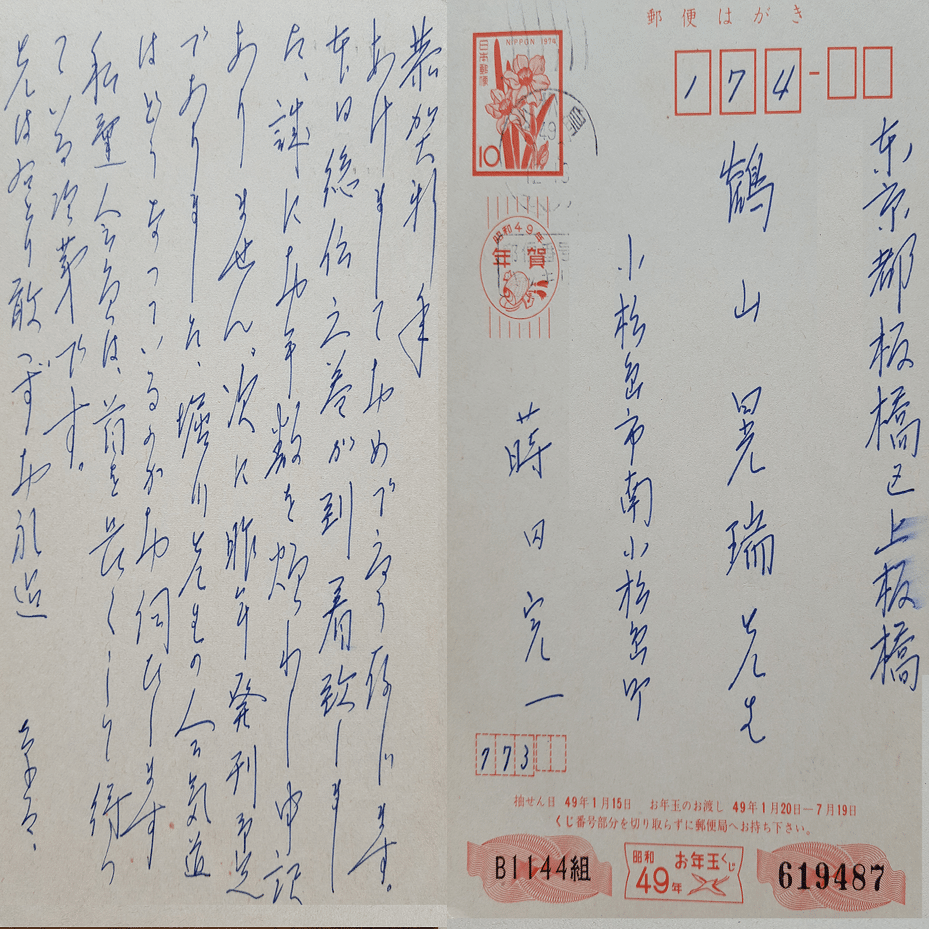 郵便はがき
174-
日本郵便
NIPPON 1974
10
昭和49年
年賀
東京都板橋区上板橋
鶴山晃瑞先生
小松島市南小松島町
蒔田完一
773
抽せん日 49年1月15日 お年玉のお渡し 49年1月20日―7月19日
くじ番号部分を切り取らずに郵便局へお持ち下さい。
B1144組
昭和49年 お年玉くじ
619487
恭賀新年
あけましておめでとう存じます。
本日総伝之巻が到着致しまし
た、誠にお手数を煩わし申訳
ありません。次に昨年発刊予定
でありました、堀川先生の合気道
はどうなっているのかお伺ひします
私 会員は、首を長くして待っ
ている次第です。
先は右とり敢ずお礼迄
草々、